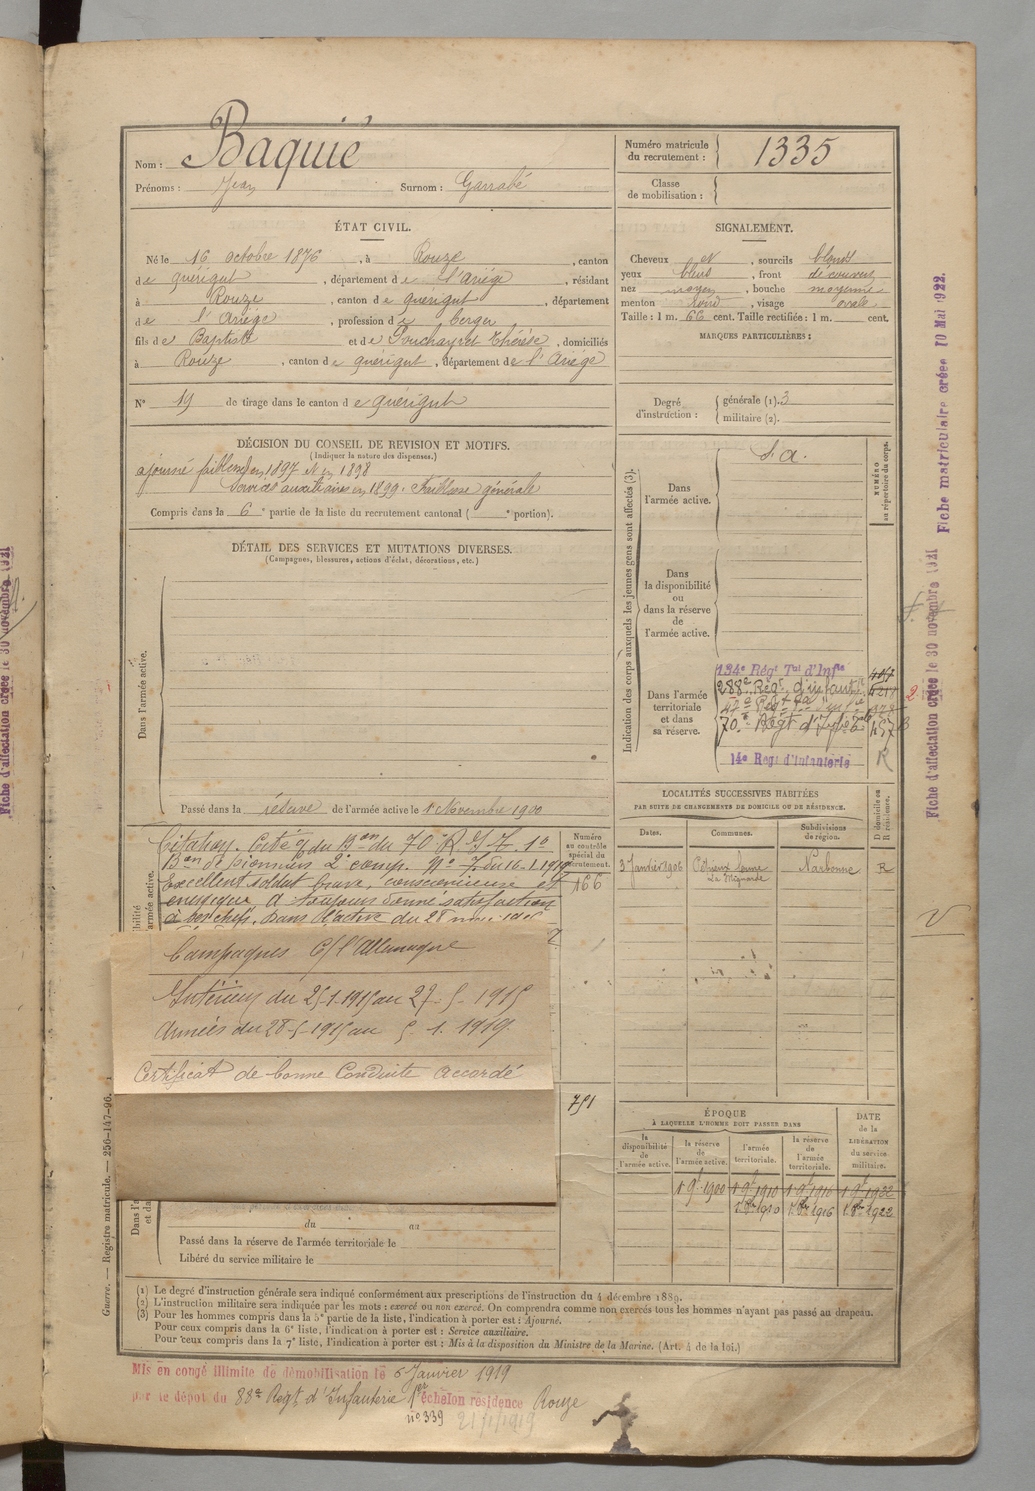 Baquié
Nom :
Prénoms : Jean Surnom : Garrabé
Numéro matricule du recrutement : 1335
Classe de mobilisation :
ÉTAT CIVIL.
Né le 16 octobre 1876, à Rouze, canton
de quérigut, département de l'Ariége, résidant
à Rouze, canton de quérigut, département
de l'Ariége, profession de berger
fils de Baptiste et de Pouchayret Thérèse, domiciliés
à Rouze, canton de quérigut, département de l'Ariége
N° 19 de tirage dans le canton de quérigut
SIGNALEMENT.
Cheveux et, sourcils blonds
yeux bleus, front découvert
nez moyen, bouche moyenne
menton rond, visage ovale
Taille : 1 m. 66 cent. Taille rectifiée : 1 m. cent.
MARQUES PARTICULIÈRES :
Degré d'instruction : générale (1). 3
militaire (2).
DÉCISION DU CONSEIL DE REVISION ET MOTIFS.
(Indiquer la nature des dispenses.)
ajourné faiblesse en 1897 et en 1898
Services auxiliaires en 1899. Faiblesse générale
Compris dans la 6e partie de la liste du recrutement cantonal ( e portion).
DÉTAIL DES SERVICES ET MUTATIONS DIVERSES.
(Campagnes, blessures, actions d'éclat, décorations, etc.)
Dans l'armée active.
Passé dans la réserve de l'armée active le 1 Novembre 1900
Indication des corps auxquels les jeunes gens sont affectés (3).
NUMÉRO au répertoire du corps.
Dans l'armée active.
S. a.
Dans la disponibilité ou dans la réserve de l'armée active.
Dans l'armée territoriale et dans sa réserve.
134e Régt Tal d'Infie
288e Régt d'infanterie
70e Régt d'Infie
14e Regt d'Infanterie
R
Citation. Cité du Bon du 70 R.I.T. 1er
Bon de Pionniers 2e comp. No 7. du 16.1.1919
Excellent soldat brave, consciencieux et
énergique, a toujours donné satisfaction
à ses chefs.
Numéro au contrôle spécial du recrutement.
166
751
Campagnes C/ l'Allemagne
Intérieur du 25-1-1915 au 27-5-1915
Armées du 28-5-1915 au 5.1.1919
Certificat de bonne Conduite accordé
LOCALITÉS SUCCESSIVES HABITÉES
PAR SUITE DE CHANGEMENTS DE DOMICILE OU DE RÉSIDENCE.
Dates. Communes. Subdivisions de région. D domicile ou R résidence.
3 Janvier 1906 Narbonne R
ÉPOQUE
À LAQUELLE L'HOMME DOIT PASSER DANS
la disponibilité de l'armée active.
la réserve de l'armée active.
l'armée territoriale.
la réserve de l'armée territoriale.
DATE de la LIBÉRATION du service militaire.
1 9bre 1900 1 9bre 1910 1 9bre 1916 1 9bre 1922
1. 8bre 1910 1. 8bre 1916 1. 8bre 1922
du au
Passé dans la réserve de l'armée territoriale le
Libéré du service militaire le
(1) Le degré d'instruction générale sera indiqué conformément aux prescriptions de l'instruction du 4 décembre 1889.
(2) L'instruction militaire sera indiquée par les mots : exercé ou non exercé. On comprendra comme non exercés tous les hommes n'ayant pas passé au drapeau.
(3) Pour les hommes compris dans la 5e partie de la liste, l'indication à porter est : Ajourné.
Pour ceux compris dans la 6e liste, l'indication à porter est : Service auxiliaire.
Pour ceux compris dans la 7e liste, l'indication à porter est : Mis à la disposition du Ministre de la Marine. (Art. 4 de la loi.)
Guerre. — Registre matricule. — 256-147-96.
Mis en congé illimité de démobilisation le 5 Janvier 1919
par le dépôt du 88e Régt d'Infanterie 1er échelon résidence Rouze
no 339 21/1/1919
Fiche d'affectation créée le 30 novembre 1921
Fiche matriculaire créée 10 Mai 1922.
Fiche d'affectation créée le 30 novembre 1921